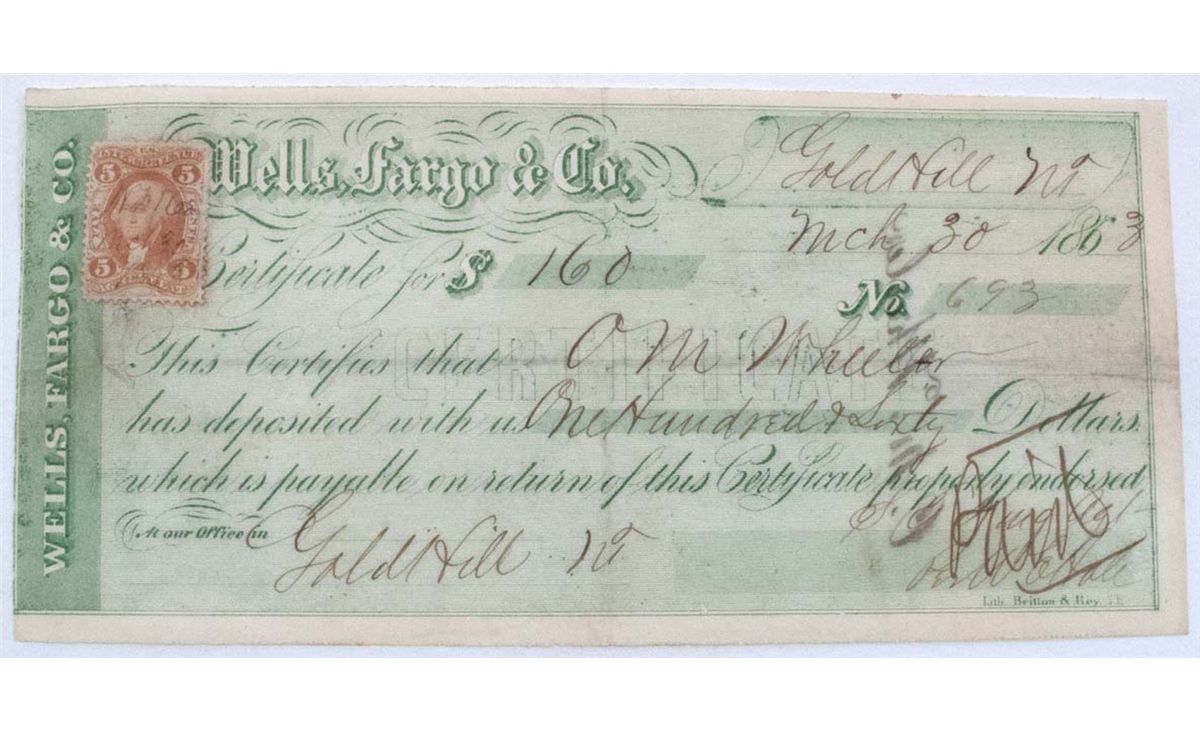 WELLS, FARGO & CO.
Wells, Fargo & Co.
Gold Hill NT
Mch 30 1863
5 5
U.S.
5 5
Certificate for $ 160
No. 693
CERTIFICATE
This Certifies that O M Wheeler
has deposited with us One Hundred & Sixty Dollars,
which is payable on return of this Certificate properly endorsed
At our Office in Gold Hill NT
Paid
Lith. Britton & Rey, S.F.